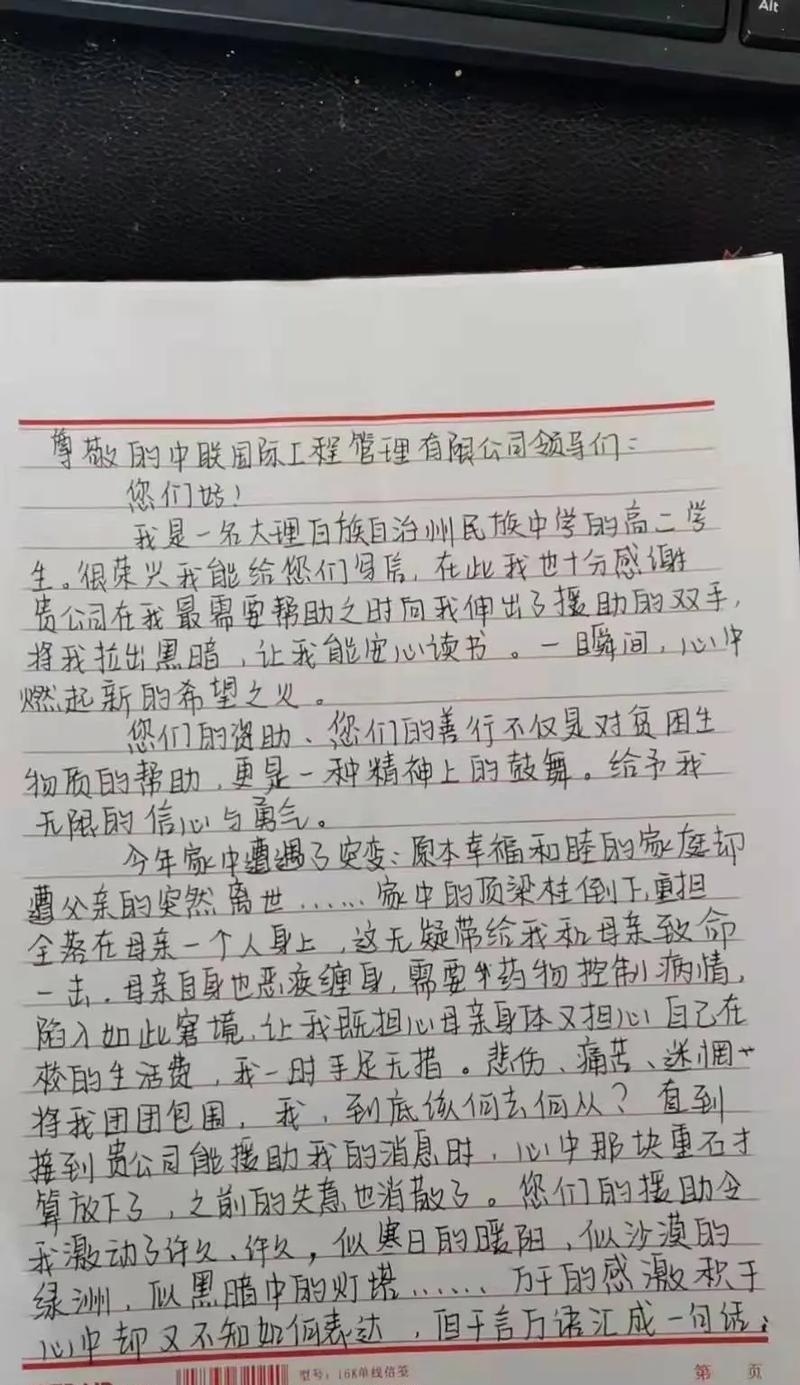 Alt
尊敬的中联国际工程管理有限公司领导们：
您们好！
我是一名大理白族自治州民族中学的高二学
生。很荣兴我能给您们写信，在此我也十分感谢
贵公司在我最需要帮助之时向我伸出了援助的双手，
将我拉出黑暗，让我能安心读书。一瞬间，心中
燃起新的希望之火。
您们的资助、您们的善行不仅是对贫困生
物质的帮助，更是一种精神上的鼓舞。给予我
无限的信心与勇气。
今年家中遭遇了突变：原本幸福和睦的家庭却
遭父亲的突然离世……家中的顶梁柱倒下，重担
全落在母亲一个人身上，这无疑带给我和母亲致命
一击，母亲自身也恶疾缠身，需要药物控制病情，
陷入如此窘境，让我既担心母亲身体又担心自己在
校的生活费，我一时手足无措。悲伤、痛苦、迷惘
将我团团包围，我，到底该何去何从？直到
接到贵公司能援助我的消息时，心中那块重石才
算放下了，之前的失意也消散了。您们的援助令
我激动了许久、许久，似寒日的暖阳，似沙漠的
绿洲，似黑暗中的灯塔……万千的感激积于
心中却又不知如何表达，但千言万语汇成一句话：
型号：16K单线信签
第 页